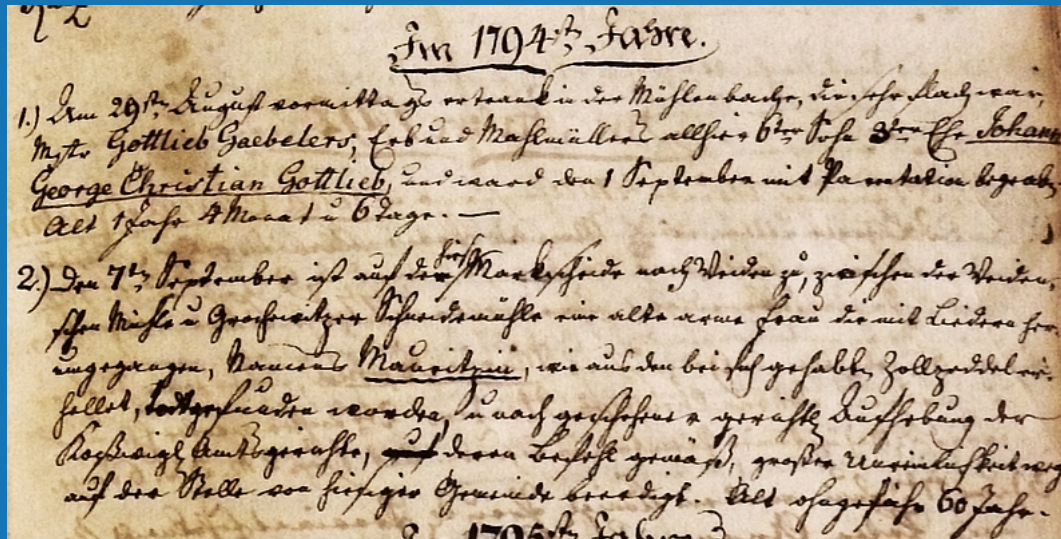 Im 1794st. Jahre.
1.) Am 29st. August vormittags ertrank in der Mühlenbache, die sehr flach war,
Mstr Gottlieb Gaebelers, Erb und Mahlmüllers allhier 6ter Sohn 3ter Ehe Johann
George Christian Gottlieb, und ward den 1 September mit Parentation begraben,
Alt 1 Jahr 4 Monat u 6 Tage. —
2.) Den 7t. September ist auf der hies. Markscheide nach Weiden zu, zwischen der Weiden
schen Mühle u Grochwitzer Schneidemühle eine alte arme Frau die mit Liedern her
umgegangen, Namens Mauritzin, wie aus den bei sich gehabten Zollzeddel er
hellet, todtgefunden worden, u nach geschehener gerichtl. Aufhebung der
Amtsgerichte, auf deren Befehl gemäß, großer Unreinlichkeit weg
auf der Stelle von hiesiger Gemeinde beerdigt. Alt ohngefähr 60 Jahr.